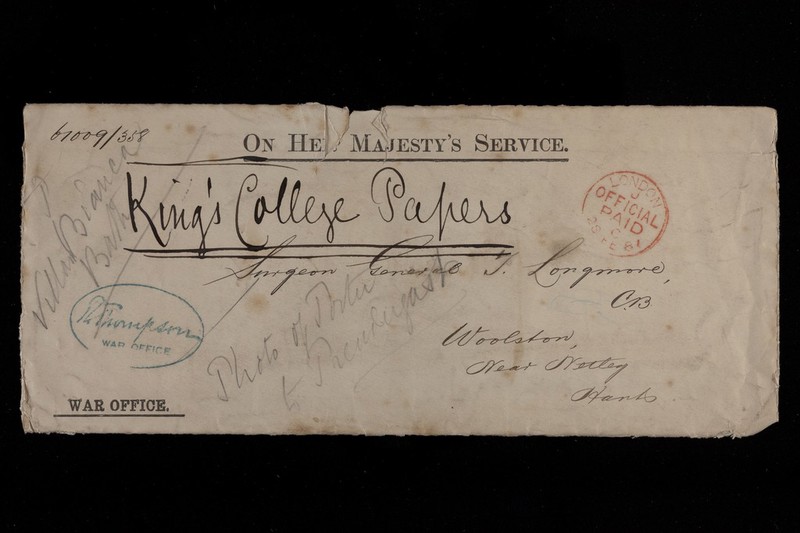 61009/358
ON HER MAJESTY'S SERVICE.
King's College Papers
LONDON
OFFICIAL
PAID
C
FE 81
Surgeon General T. Longmore,
C.B
Woolston,
Near Netley
Hants
Villa Bianca
Bath
Thompson
WAR OFFICE
Photo of Porter
to Prendergast
WAR OFFICE.